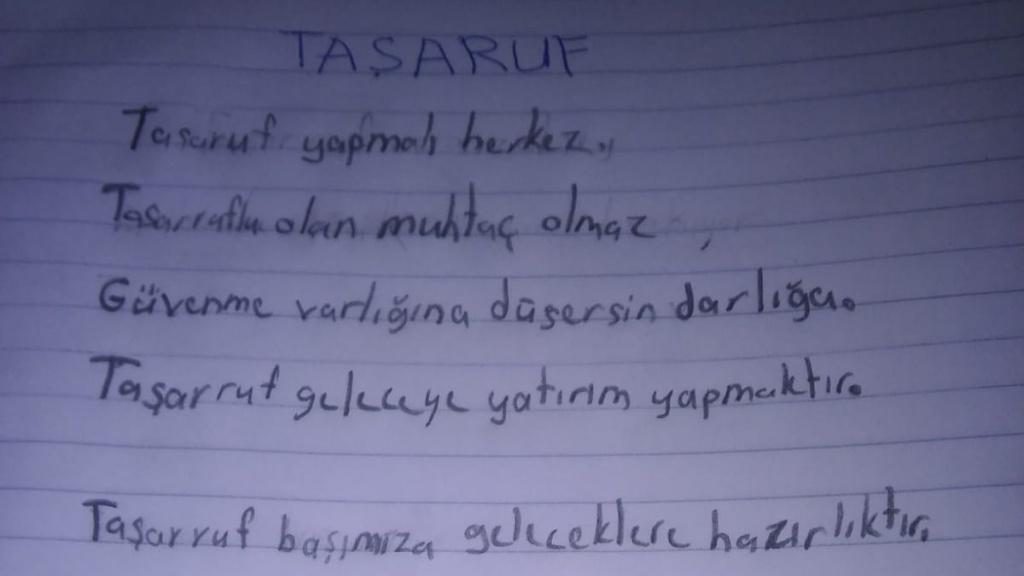 TAŞARUF
Tasaruf yapmalı herkez.,
Tasarruflu olan muhtaç olmaz ,
Güvenme varlığına düşersin darlığa.
Taşarruf geleceye yatırım yapmaktır.
Taşarruf başımıza geleceklere hazırlıktır.